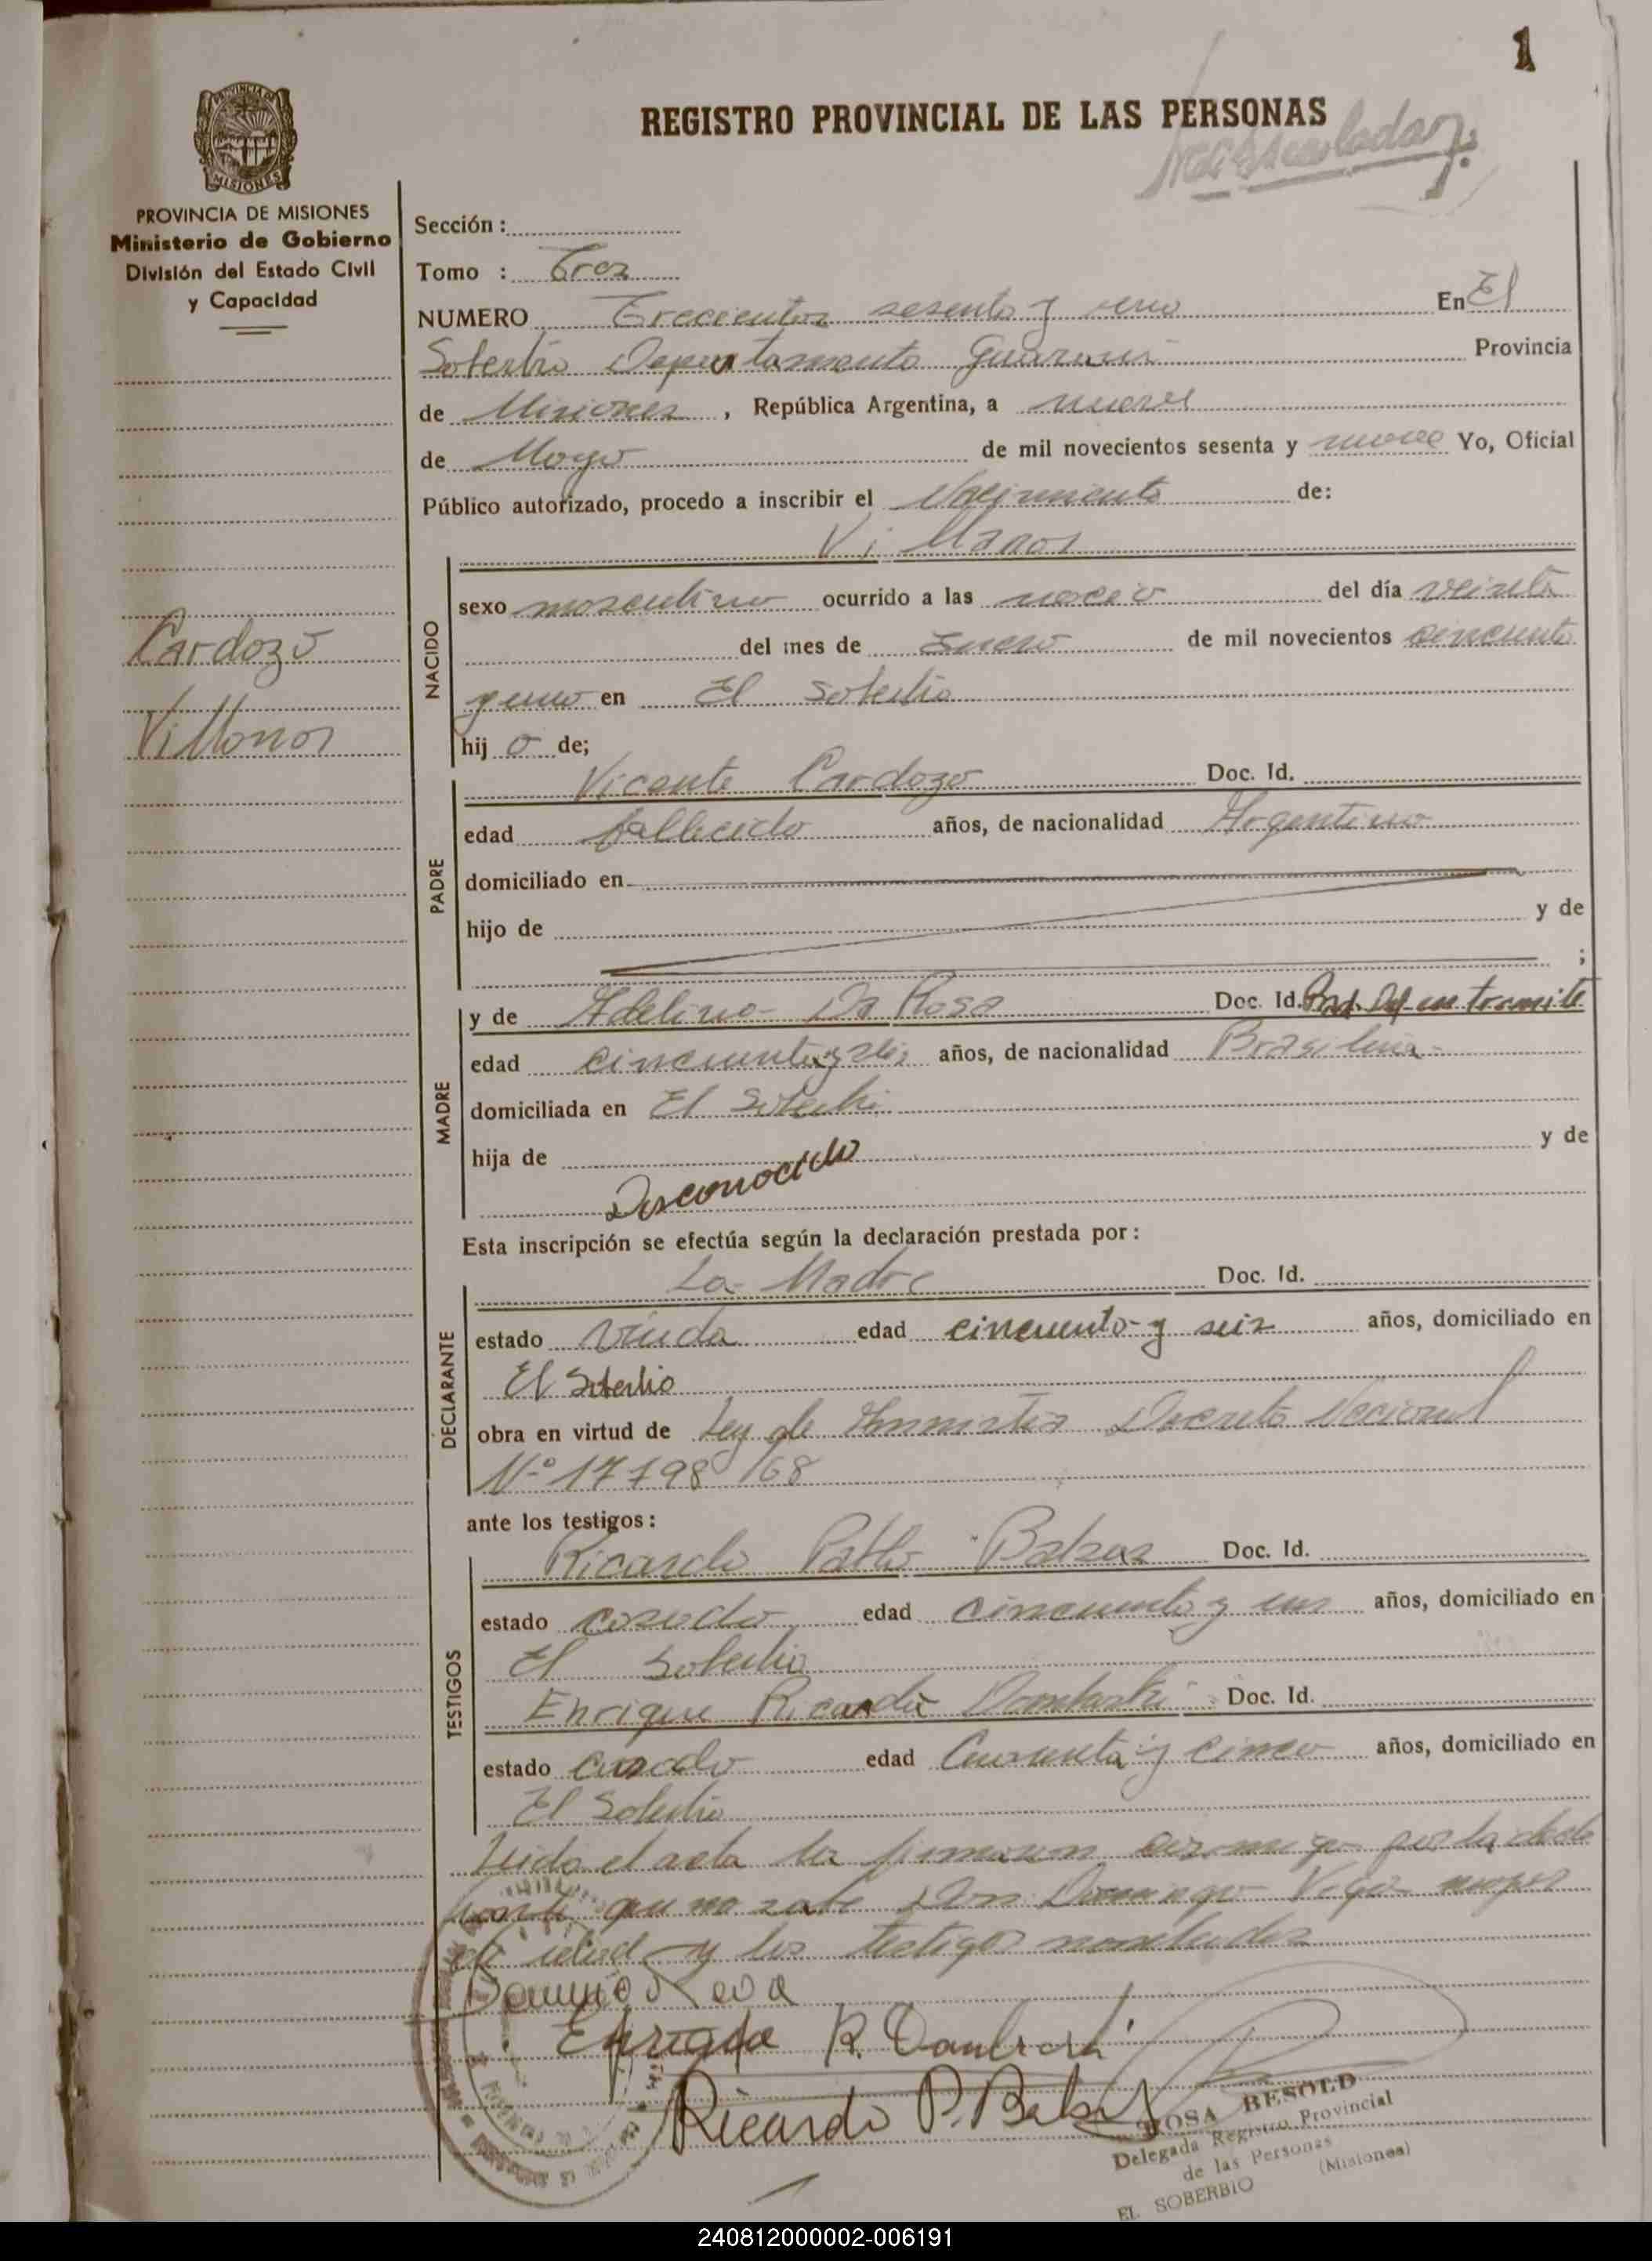 1
REGISTRO PROVINCIAL DE LAS PERSONAS
MISIONES
PROVINCIA DE MISIONES
Ministerio de Gobierno
División del Estado Civil
y Capacidad
Sección :
Tomo : Tres
NUMERO Trecientos sesenta y uno En El
Soberbio Departamento Guarani Provincia
de Misiones , República Argentina, a nueve
de Mayo de mil novecientos sesenta y nueve Yo, Oficial
Público autorizado, procedo a inscribir el Nacimiento de:
Cardozo
Villanor
NACIDO
Villanor
sexo masculino ocurrido a las del día veinte
del mes de Enero de mil novecientos cincuenta
y uno en El Soberbio
hij o de;
PADRE
Vicente Cardozo Doc. Id.
edad fallecido años, de nacionalidad Argentino
domiciliado en
hijo de y de
;
MADRE
y de Adelina Da Rosa Doc. Id. en tramite
edad cincuenta y seis años, de nacionalidad Brasilena
domiciliada en El Soberbio
hija de y de
Desconocido
Esta inscripción se efectúa según la declaración prestada por :
DECLARANTE
La Madre Doc. Id.
estado Viuda edad cincuenta y seis años, domiciliado en
El Soberbio
obra en virtud de Ley de Amnistia Decreto Nacional
Nº 17798/68
ante los testigos :
TESTIGOS
Ricardo Pablo Doc. Id.
estado casado edad cincuenta y un años, domiciliado en
El Soberbio
Enrique Ricardo Doc. Id.
estado casado edad Cuarenta y cinco años, domiciliado en
El Soberbio
Leida el acta la firmaron conmigo por la decla
rante que no sabe Don Domingo mayor
de edad y los testigos nombrados
Enrique R.
Ricardo P.
ROSA BESOLD
Delegada Registro Provincial
de las Personas
EL SOBERBIO (Misiones)
240812000002-006191